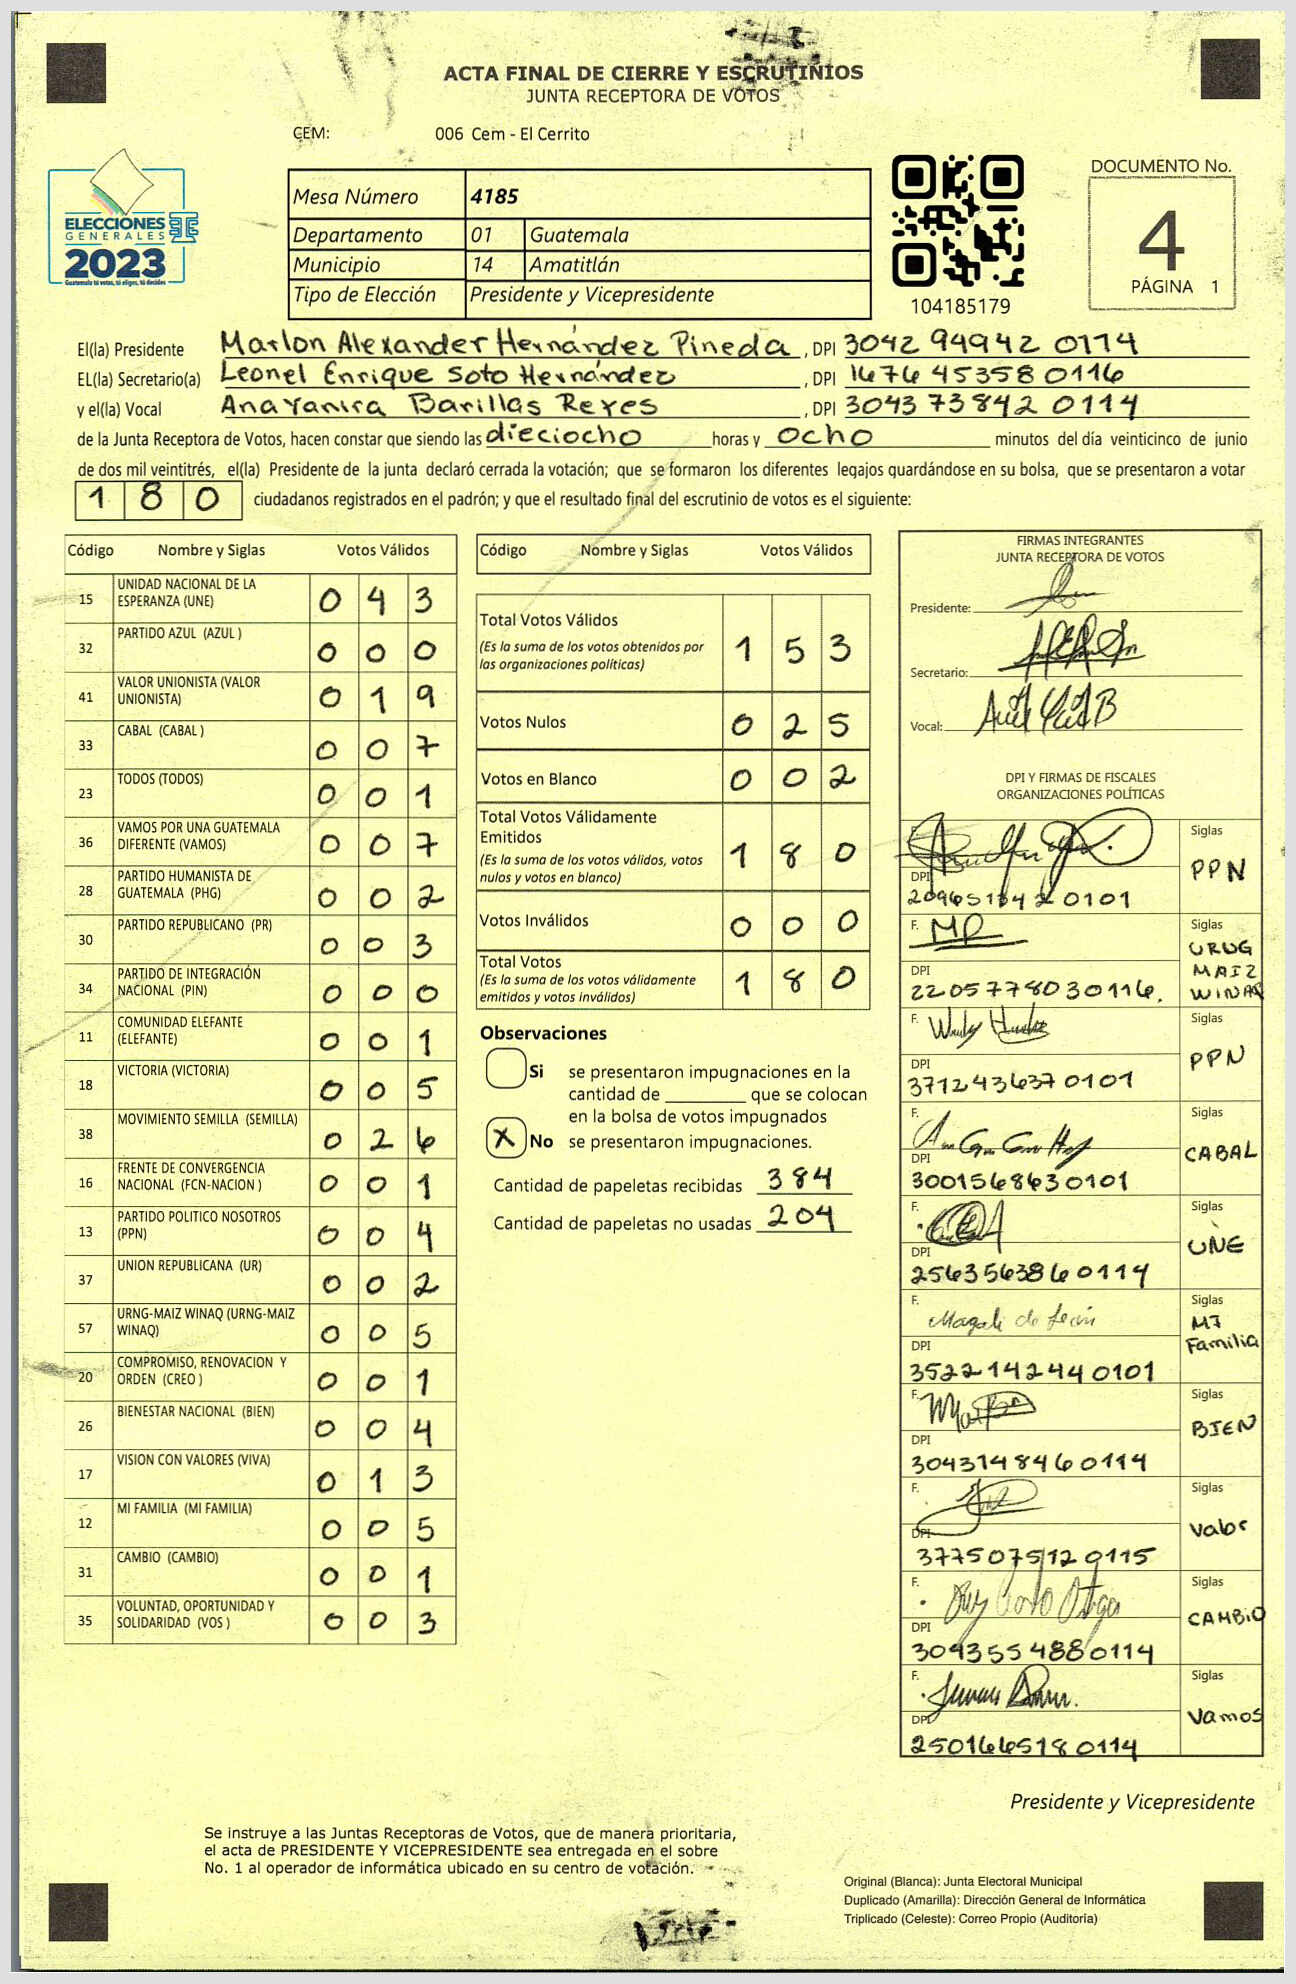 ACTA FINAL DE CIERRE Y ESCRUTINIOS
JUNTA RECEPTORA DE VOTOS
CEM: 006 Cem - El Cerrito
ELECCIONES
GENERALES
2023
Guatemala tú votas, tú eliges, tú decides
Mesa Número 4185
Departamento 01 Guatemala
Municipio 14 Amatitlán
Tipo de Elección Presidente y Vicepresidente
104185179
DOCUMENTO No.
4
PÁGINA 1
El(la) Presidente Marlon Alexander Hernández Pineda, DPI 3042 94942 0114
EL(la) Secretario(a) Leonel Enrique Soto Hernández, DPI 1676 45358 0116
y el(la) Vocal Ana Yanira Barillas Reyes, DPI 3043 73842 0114
de la Junta Receptora de Votos, hacen constar que siendo las dieciocho horas y ocho minutos del día veinticinco de junio
de dos mil veintitrés, el(la) Presidente de la junta declaró cerrada la votación; que se formaron los diferentes legajos quardándose en su bolsa, que se presentaron a votar
180 ciudadanos registrados en el padrón; y que el resultado final del escrutinio de votos es el siguiente:
Código Nombre y Siglas Votos Válidos
15 UNIDAD NACIONAL DE LA ESPERANZA (UNE) 0 4 3
32 PARTIDO AZUL (AZUL ) 0 0 0
41 VALOR UNIONISTA (VALOR UNIONISTA) 0 1 9
33 CABAL (CABAL ) 0 0 7
23 TODOS (TODOS) 0 0 1
36 VAMOS POR UNA GUATEMALA DIFERENTE (VAMOS) 0 0 7
28 PARTIDO HUMANISTA DE GUATEMALA (PHG) 0 0 2
30 PARTIDO REPUBLICANO (PR) 0 0 3
34 PARTIDO DE INTEGRACIÓN NACIONAL (PIN) 0 0 0
11 COMUNIDAD ELEFANTE (ELEFANTE) 0 0 1
18 VICTORIA (VICTORIA) 0 0 5
38 MOVIMIENTO SEMILLA (SEMILLA) 0 2 6
16 FRENTE DE CONVERGENCIA NACIONAL (FCN-NACION ) 0 0 1
13 PARTIDO POLITICO NOSOTROS (PPN) 0 0 4
37 UNION REPUBLICANA (UR) 0 0 2
57 URNG-MAIZ WINAQ (URNG-MAIZ WINAQ) 0 0 5
20 COMPROMISO, RENOVACION Y ORDEN (CREO ) 0 0 1
26 BIENESTAR NACIONAL (BIEN) 0 0 4
17 VISION CON VALORES (VIVA) 0 1 3
12 MI FAMILIA (MI FAMILIA) 0 0 5
31 CAMBIO (CAMBIO) 0 0 1
35 VOLUNTAD, OPORTUNIDAD Y SOLIDARIDAD (VOS ) 0 0 3
Código Nombre y Siglas Votos Válidos
Total Votos Válidos 1 5 3
(Es la suma de los votos obtenidos por
las organizaciones políticas)
Votos Nulos 0 2 5
Votos en Blanco 0 0 2
Total Votos Válidamente
Emitidos 1 8 0
(Es la suma de los votos válidos, votos
nulos y votos en blanco)
Votos Inválidos 0 0 0
Total Votos 1 8 0
(Es la suma de los votos válidamente
emitidos y votos inválidos)
Observaciones
Si se presentaron impugnaciones en la
cantidad de ________ que se colocan
en la bolsa de votos impugnados
X No se presentaron impugnaciones.
Cantidad de papeletas recibidas 384
Cantidad de papeletas no usadas 204
FIRMAS INTEGRANTES
JUNTA RECEPTORA DE VOTOS
Presidente:
Secretario:
Vocal:
DPI Y FIRMAS DE FISCALES
ORGANIZACIONES POLÍTICAS
F. Siglas
PPN
DPI
209651342 0101
F. MP Siglas
URUG
MAIZ
WINAQ
DPI
22057778030116.
F. Siglas
PPN
DPI
371243637 0101
F. Siglas
CABAL
DPI
3001568630101
F. Siglas
UNE
DPI
2563563860114
F. Magali de León Siglas
MI
Familia
DPI
3522142440101
F. Siglas
BIEN
DPI
3043148460114
F. Siglas
Valor
DPI
377507512 0115
F. Siglas
CAMBIO
DPI
3043554880114
F. Siglas
Vamos
DPI
2501665180114
Presidente y Vicepresidente
Se instruye a las Juntas Receptoras de Votos, que de manera prioritaria,
el acta de PRESIDENTE Y VICEPRESIDENTE sea entregada en el sobre
No. 1 al operador de informática ubicado en su centro de votación.
Original (Blanca): Junta Electoral Municipal
Duplicado (Amarilla): Dirección General de Informática
Triplicado (Celeste): Correo Propio (Auditoría)